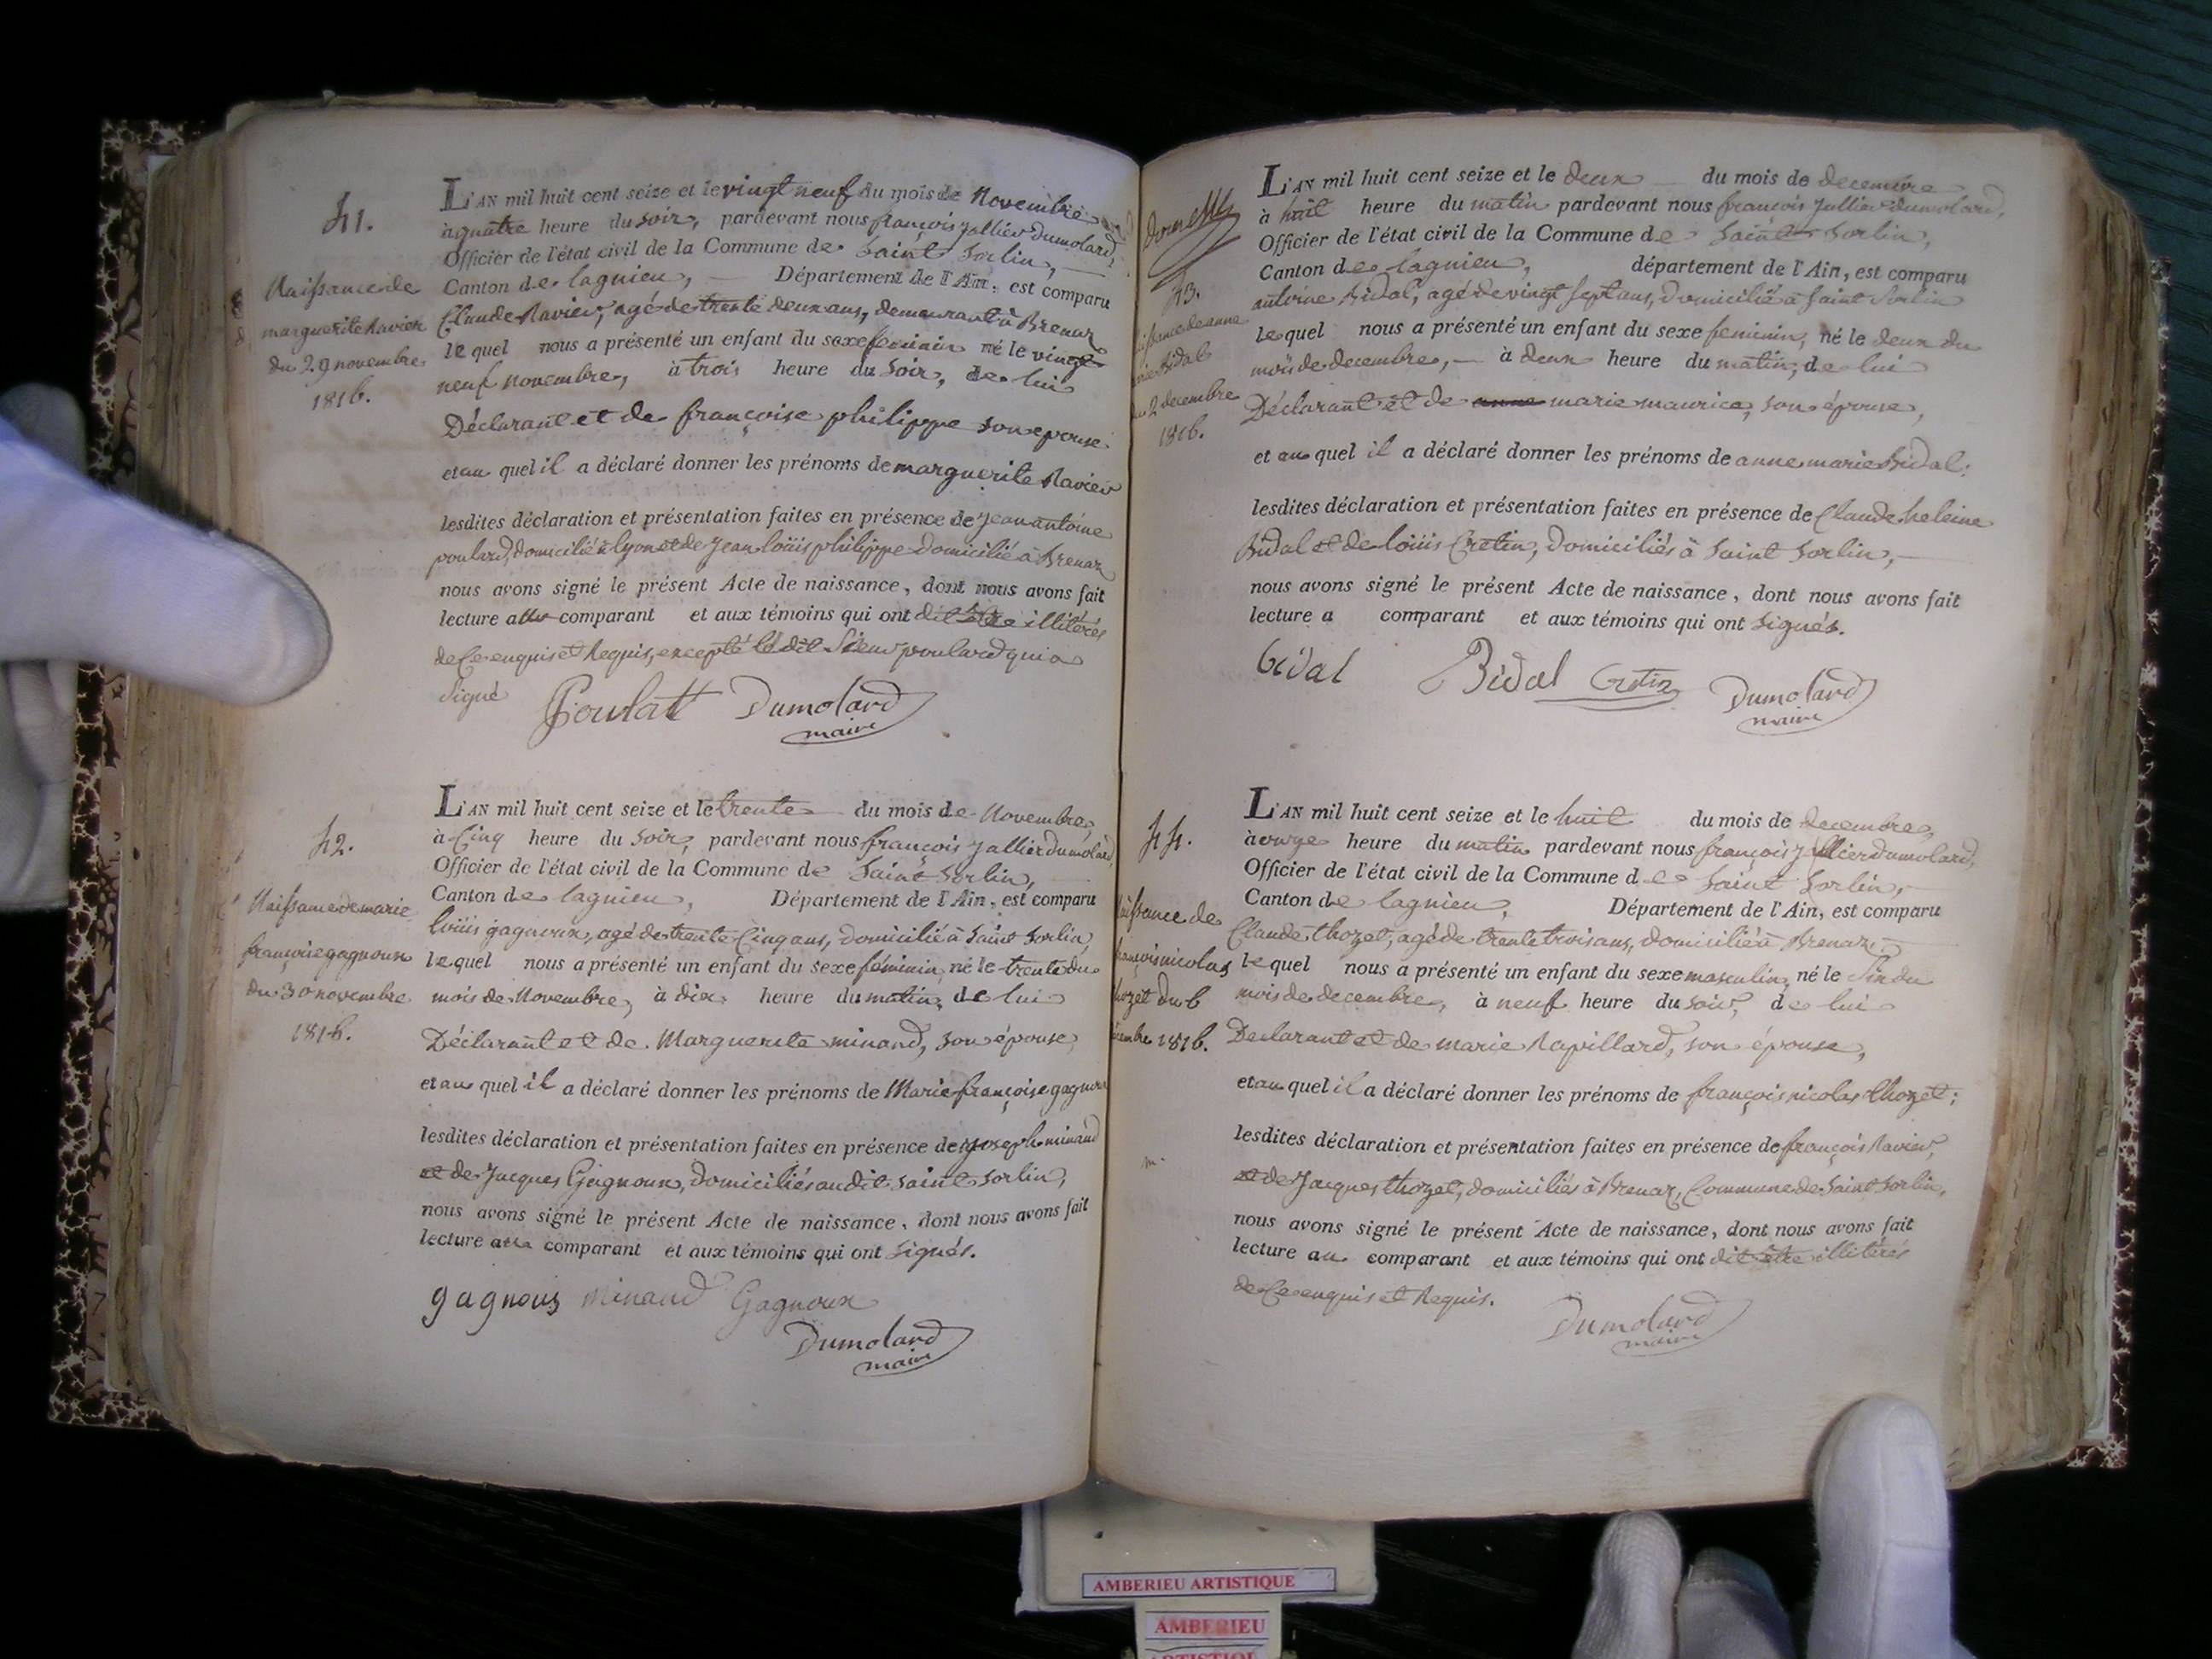 41.
Naissance de
marguerite Ravier
du 29 novembre
1816.
L'AN mil huit cent seize et le vingt neuf du mois de Novembre
à quatre heure du soir, pardevant nous françois Jullier dumolard,
Officier de l'état civil de la Commune de Saint Sorlin,
Canton de lagnieu, Département de l'Ain, est comparu
Claude Ravier, agé de trente deux ans, demeurant à Brenaz
lequel nous a présenté un enfant du sexe feminin né le vingt
neuf novembre, à trois heure du soir, de lui
Déclarant et de françoise philippe son epouse
et au quel il a déclaré donner les prénoms de marguerite Ravier
lesdites déclaration et présentation faites en présence de Jean antoine
poulard, domicilié à lyon et de Jean louis philippe domicilié à Brenaz
nous avons signé le présent Acte de naissance, dont nous avons fait
lecture au comparant et aux témoins qui ont dit être illitérés
de ce enquis et Requis, excepté le dit Sieur poulard qui a
signé Dumolard
maire
42.
Naissance de marie
françoise gagnoux
du 30 novembre
1816.
L'AN mil huit cent seize et le trente du mois de Novembre,
à Cinq heure du soir, pardevant nous françois Jullier dumolard,
Officier de l'état civil de la Commune de Saint Sorlin,
Canton de lagnieu, Département de l'Ain, est comparu
louis gagnoux, agé de trente Cinq ans, domicilié à Saint Sorlin,
lequel nous a présenté un enfant du sexe féminin, né le trente du
mois de Novembre, à dix heure du matin, de lui
Déclarant et de Marguerite minand, son épouse,
et au quel il a déclaré donner les prénoms de Marie françoise gagnoux
lesdites déclaration et présentation faites en présence de joseph minand
et de Jacques Gagnoux, domiciliés au dit Saint Sorlin,
nous avons signé le présent Acte de naissance, dont nous avons fait
lecture au comparant et aux témoins qui ont signés.
gagnoux minand Gagnoux
Dumolard
maire
43.
Naissance de anne
marie Bidal
du 2 decembre
1816.
L'AN mil huit cent seize et le deux du mois de decembre
à huit heure du matin pardevant nous françois Jullier dumolard,
Officier de l'état civil de la Commune de Saint Sorlin,
Canton de lagnieu, département de l'Ain, est comparu
antoine Bidal, agé de vingt sept ans, domicilié à Saint Sorlin
lequel nous a présenté un enfant du sexe feminin, né le deux du
mois de decembre, à deux heure du matin, de lui
Déclarant et de anne marie maurice, son épouse,
et au quel il a déclaré donner les prénoms de anne marie Bidal:
lesdites déclaration et présentation faites en présence de Claude heleine
Bidal et de louis Cretin, domiciliés à Saint Sorlin,
nous avons signé le présent Acte de naissance, dont nous avons fait
lecture a comparant et aux témoins qui ont signés.
bidal Bidal Cretin Dumolard
maire
44.
Naissance de
françois nicolas
thozet du 6
decembre 1816.
L'AN mil huit cent seize et le huit du mois de decembre,
à onze heure du matin pardevant nous françois Jullier dumolard,
Officier de l'état civil de la Commune de Saint Sorlin,
Canton de lagnieu, Département de l'Ain, est comparu
Claude thozet, agé de trente trois ans, domicilié à Brenaz
lequel nous a présenté un enfant du sexe masculin, né le Six du
mois de decembre, à neuf heure du soir, de lui
Declarant et de marie Rapillard, son épouse,
et au quel il a déclaré donner les prénoms de françois nicolas thozet;
lesdites déclaration et présentation faites en présence de françois Ravier,
et de Jacques thozet, domiciliés à Brenaz, Commune de Saint Sorlin,
nous avons signé le présent Acte de naissance, dont nous avons fait
lecture au comparant et aux témoins qui ont dit être illitérés
de ce enquis et Requis.
Dumolard
maire
AMBERIEU ARTISTIQUE
AMBERIEU
ARTISTIQUE